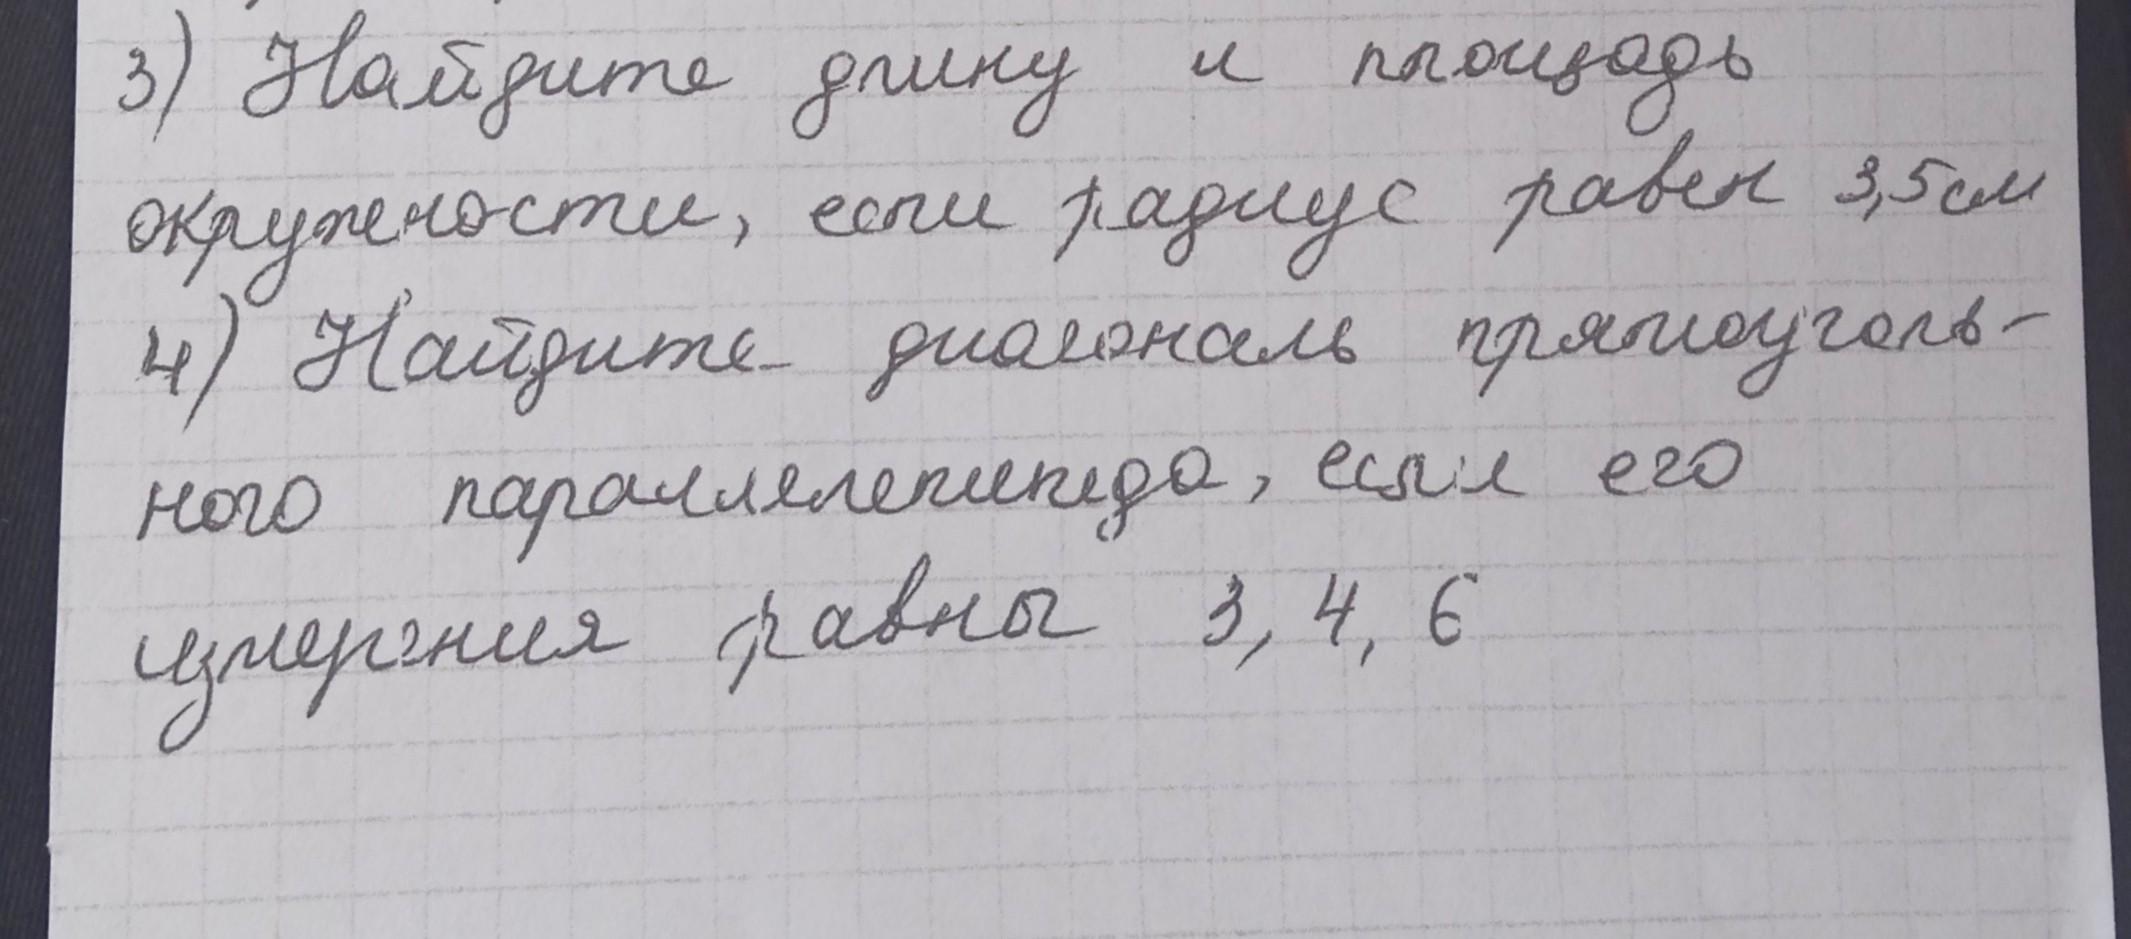 3) Найдите длину и площадь
окружности, если радиус равен 3,5см
4) Найдите диагональ прямоуголь-
ного параллелепипеда, если его
измерения равны 3, 4, 6